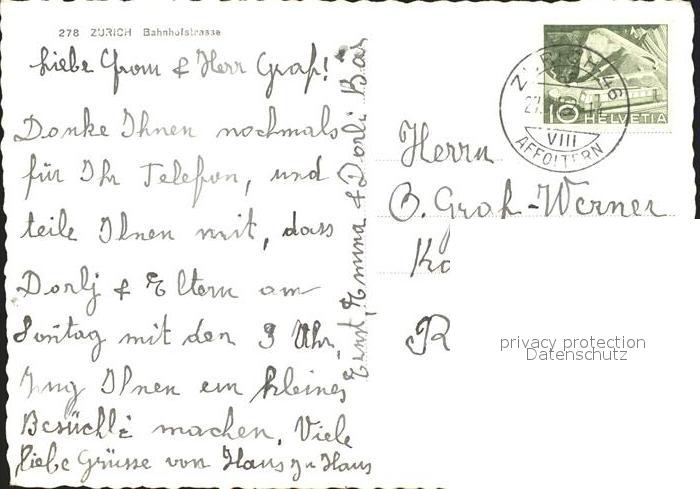 278 ZÜRICH Bahnhofstrasse
Liebe Frau & Herr Graf!
Danke Ihnen nochmals
für Ihr Telefon, und
teile Ihnen mit, dass
Dorly & Eltern am
Sontag mit den 3 Uhr,
Zug Ihnen ein kleines
Besüchli machen. Viele
liebe Grüsse von Haus zu Haus
Ernst, Emma & Dorli Bär
ZÜRICH 46
VIII
AFFOLTERN
10 HELVETIA
Herrn
O. Graf-Werner
privacy protection
Datenschutz